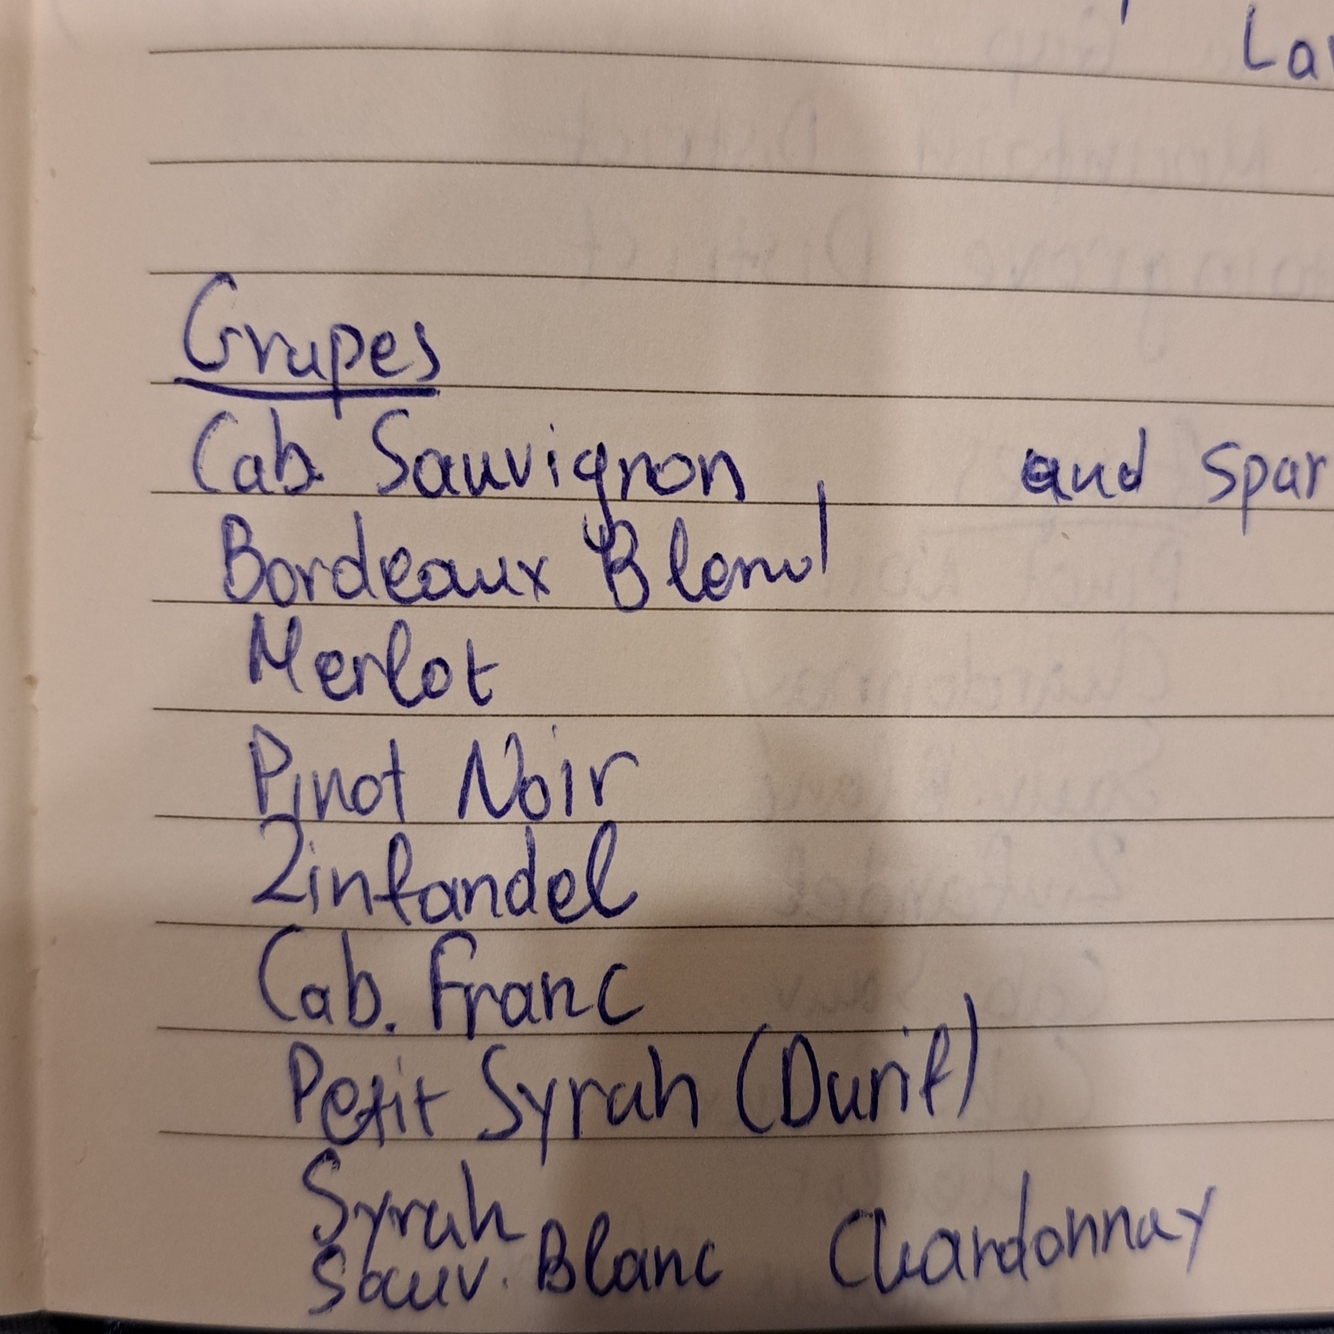 Grapes
Cab. Sauvignon and Spar
Bordeaux Blend
Merlot
Pinot Noir
Zinfandel
Cab. Franc
Petit Syrah (Durif)
Syrah
Sauv. Blanc Chardonnay